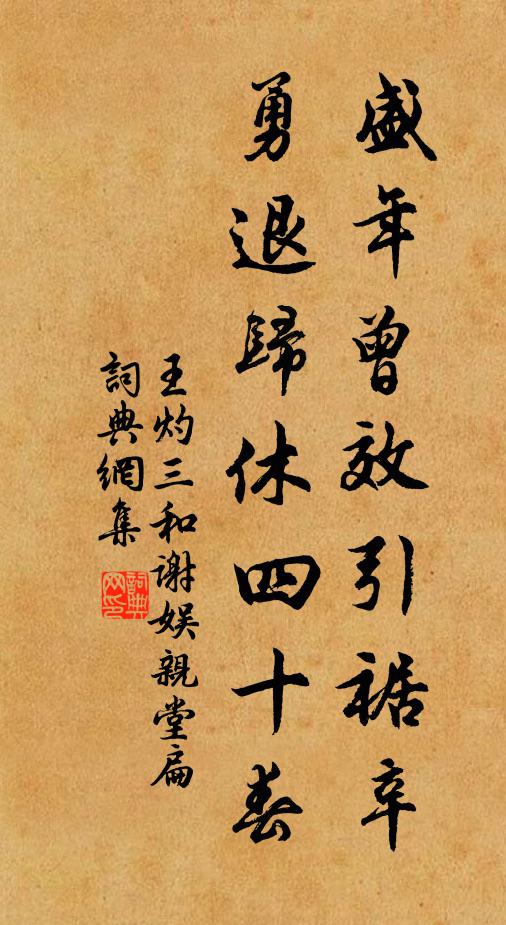 盛年曾效引裾辛
勇退歸休四十春
王灼三和謝娛親堂扁
詞典網集
詞典网印